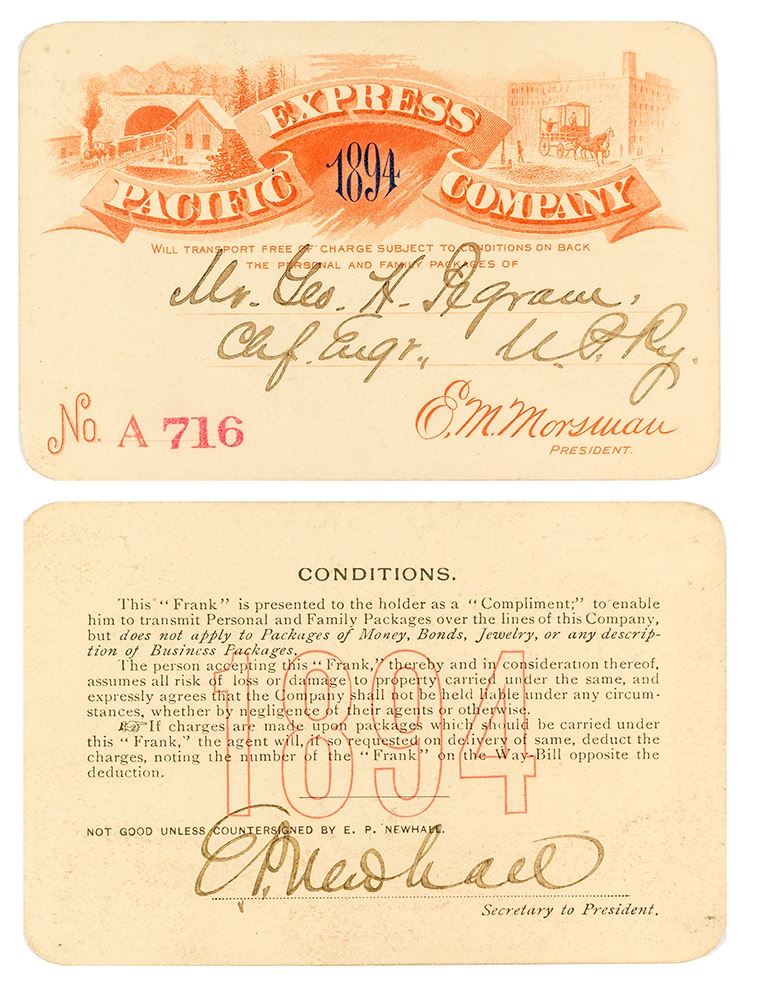 EXPRESS
PACIFIC 1894 COMPANY
WILL TRANSPORT FREE OF CHARGE SUBJECT TO CONDITIONS ON BACK
THE PERSONAL AND FAMILY PACKAGES OF
Mr. Geo. H. Pegram,
Chf. Engr., U. P. Ry.
No. A 716
E. M. Morsman
PRESIDENT.
CONDITIONS.
This "Frank" is presented to the holder as a "Compliment;" to enable
him to transmit Personal and Family Packages over the lines of this Company,
but does not apply to Packages of Money, Bonds, Jewelry, or any descrip-
tion of Business Packages.
The person accepting this "Frank," thereby and in consideration thereof,
assumes all risk of loss or damage to property carried under the same, and
expressly agrees that the Company shall not be held liable under any circum-
stances, whether by negligence of their agents or otherwise.
☞ If charges are made upon packages which should be carried under
this "Frank," the agent will, if so requested on delivery of same, deduct the
charges, noting the number of the "Frank" on the Way-Bill opposite the
deduction.
1894
NOT GOOD UNLESS COUNTERSIGNED BY E. P. NEWHALL.
E P Newhall
Secretary to President.